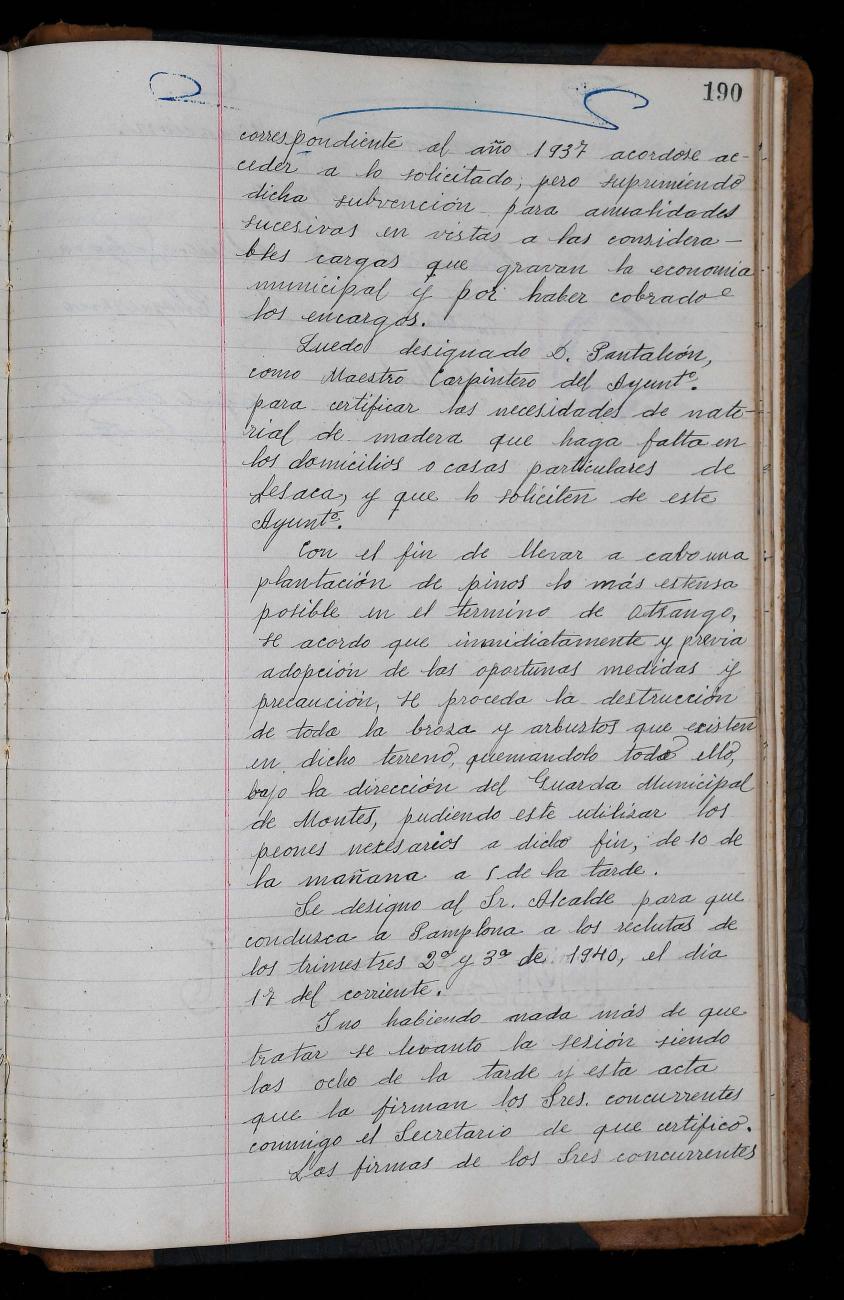 190
correspondiente al año 1937 acordose ac-
ceder a lo solicitado, pero suprimiendo
dicha subvención para anualidades
sucesivas en vistas a las considera-
bles cargas que gravan la economia
municipal y por haber cobrado
los encargos.
Quedo designado D. Pantaleón,
como Maestro Carpintero del Ayuntº.
para certificar las necesidades de mate-
rial de madera que haga falta en
los domicilios o casas particulares de
Lesaca, y que lo soliciten de este
Ayuntº.
Con el fin de llevar a cabo una
plantación de pinos lo más estensa
posible en el termino de Otsango,
se acordo que inmidiatamente y previa
adopción de las oportunas medidas y
precaución, se proceda la destrucción
de toda la broza y arbustos que existen
en dicho terreno, quemandolo todo ello,
bajo la dirección del Guarda Municipal
de Montes, pudiendo este utilizar los
peones necesarios a dicho fin, de 10 de
la mañana a 5 de la tarde.
Se designo al Sr. Alcalde para que
conduzca a Pamplona a los reclutas de
los trimestres 2º y 3º de 1940, el dia
17 del corriente.
Y no habiendo nada más de que
tratar se levanto la sesión siendo
las ocho de la tarde y esta acta
que la firman los Sres. concurrentes
conmigo el Secretario de que certifico.
Las firmas de los Sres concurrentes